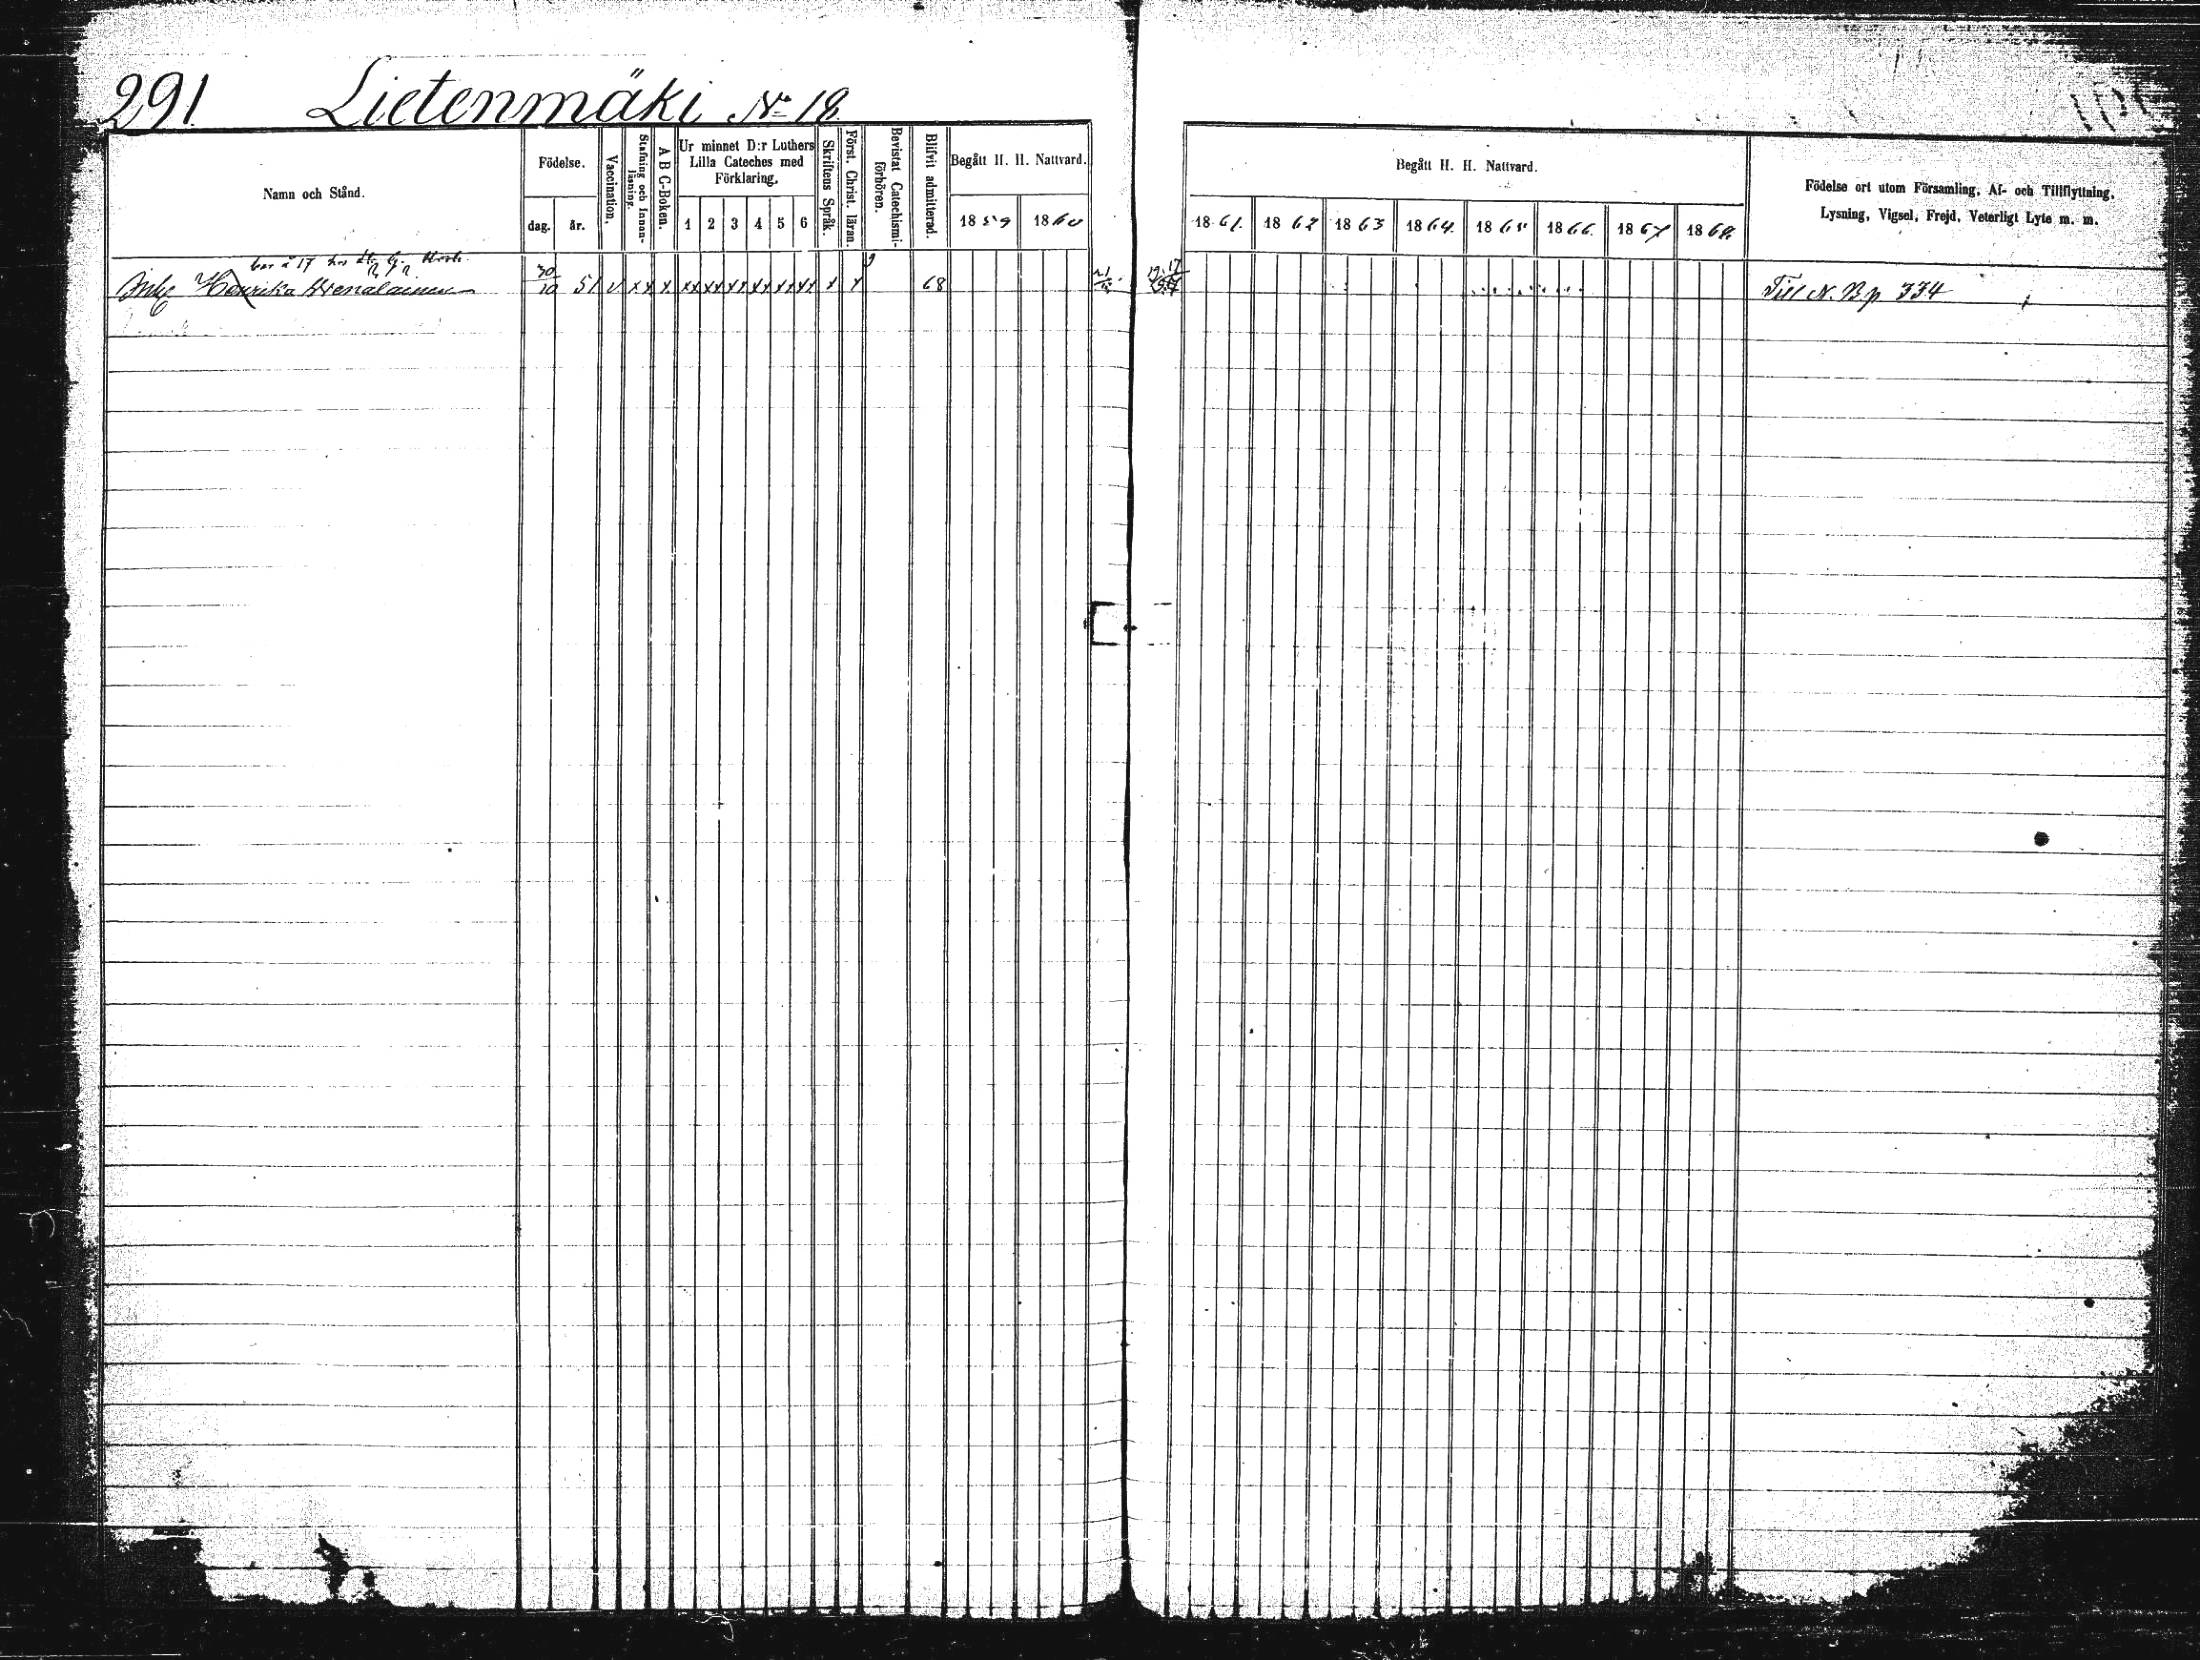 291. Lietenmäki No 18
Namn och Stånd.
Födelse.
dag. år.
Vaccination.
Stafning och Innanläsning.
A B C-Boken.
Ur minnet D:r Luthers Lilla Cateches med Förklaring.
1 2 3 4 5 6
Skriftens Språk.
Först. Christ. läran.
Bevistat Catechismiförhören.
Blifvit admitterad.
Begått H. H. Nattvard.
1859 1860
Begått H. H. Nattvard.
1861. 1862 1863 1864. 1865 1866. 1867 1868.
Födelse ort utom Församling, Af- och Tillflyttning, Lysning, Vigsel, Frejd, Veterligt Lyte m. m.
Henrika 30/10 51 v x x x x x x x x x x x x x x x x x x 68 Till N. B p 334